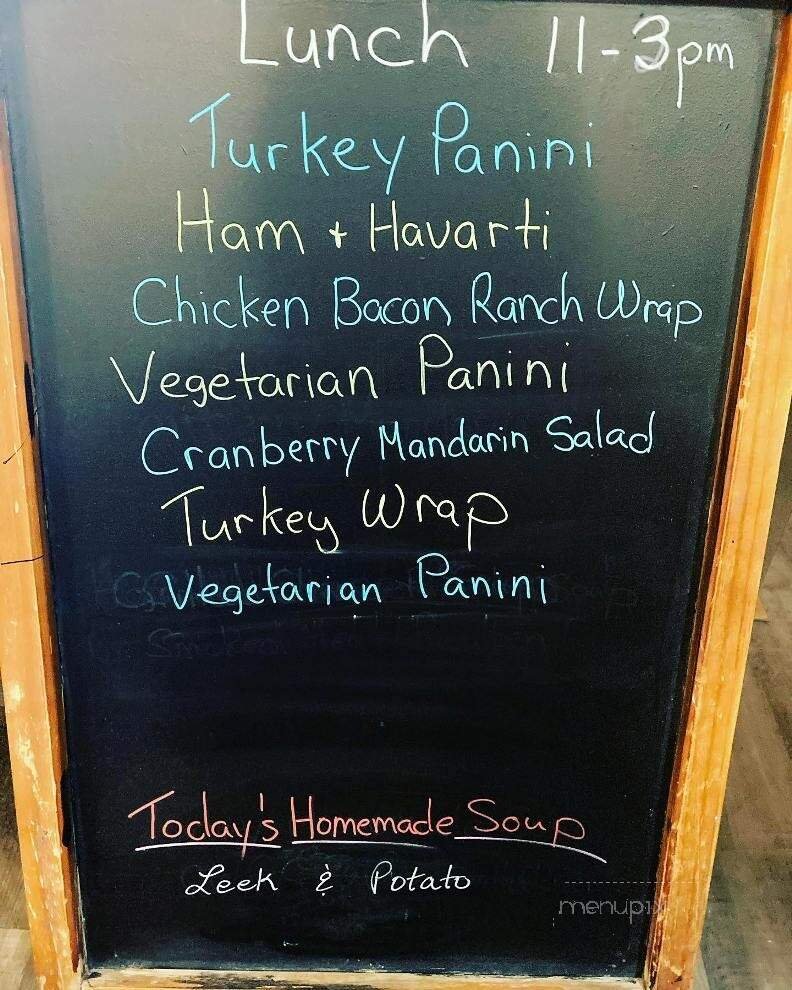 Lunch 11-3pm
Turkey Panini
Ham + Havarti
Chicken Bacon Ranch Wrap
Vegetarian Panini
Cranberry Mandarin Salad
Turkey Wrap
Vegetarian Panini
Today's Homemade Soup
Leek & Potato
menupix